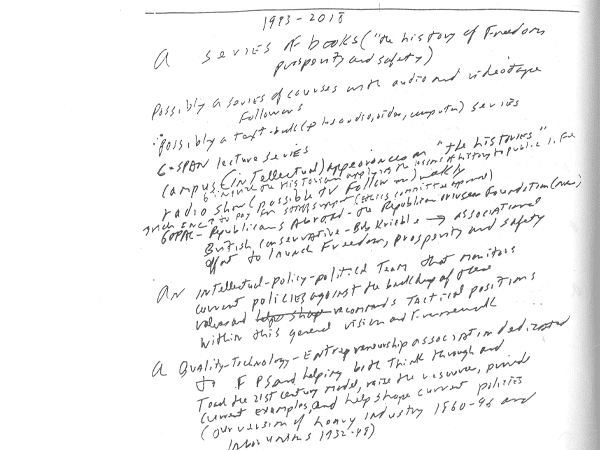 1993-2018
A series of books ("the history of Freedom,
prosperity and safety)
possibly a series of courses with audio and videotape
followers
possibly a text-book (plus audio, video, computer) series
C-SPAN lecture series
Campus (intellectual) appearances on "the histories"
the lessons of history to public life
radio show (possible TV follow on) weekly
to pay for staff support (ethics committee approval)
GOPAC - Republicans Abroad - the Republican
Foundation
British Conservative - Bob → associational
effort to launch Freedom, prosperity and safety
An intellectual-policy-political Team that monitors
current policies against the backdrop of these
values and recommends tactical positions
within this general vision and framework
A Quality-Technology-Entrepreneurship association dedicated
to FPS and helping both Think through and
the 21st century model, raise the resources, provide
current examples, and help shape current policies
(our version of heavy industry 1860-96 and
labor unions 1932-48)